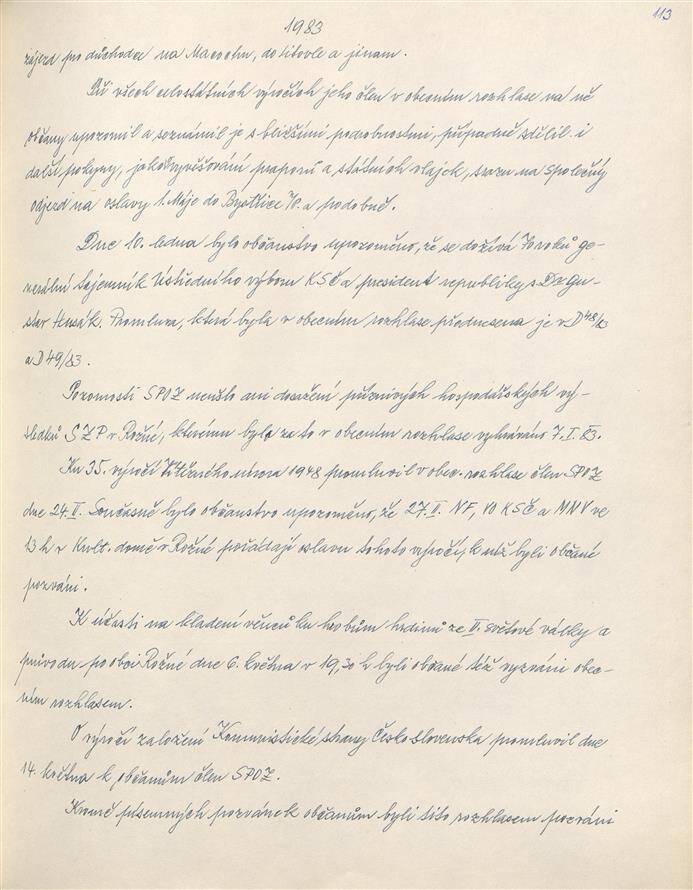 1983
113
zájezd pro důchodce na Macochu, do Litovle a jinam.
Při všech celostátních výročích jeho člen v obecním rozhlase na ně
občany upozornil a seznámil je s bližšími podrobnostmi, případně sdělil i
další pokyny, jako vyvěšování praporů a státních vlajek, svazu na společný
odjezd na oslavy 1. Máje do Bystřice n/P. a podobně.
Dne 10. ledna bylo občanstvo upozorněno, že se dožívá 70 roků ge-
nerální tajemník Ústředního výboru KSČ a president republiky s. Dr Gu-
stav Husák. Promluva, která byla v obecním rozhlase přednesena je v D 48/83
a D 49/83.
Pozornosti SPOZ neušlo ani dosažení příznivých hospodářských vý-
sledků SZP v Rožné, kterému bylo za to v obecním rozhlase vyhráváno 7. I. 83.
Ku 35. výročí Vítězného února 1948 promluvil v obec. rozhlase člen SPOZ
dne 24. II. Současně bylo občanstvo upozorněno, že 27. II. NF, VO KSČ a MNV ve
13 h v Kult. domě v Rožné pořádají oslavu tohoto výročí, k níž byli občané
pozváni.
K účasti na kladení věnců ku hrobům hrdinů ze II. světové války a
průvodu po obci Rožné dne 6. května v 19,30 h byli občané též vyzváni obec-
ním rozhlasem.
O výročí založení Komunistické strany Československa promluvil dne
14. května k občanům člen SPOZ.
Kromě písemných pozvánek občanům byli tito rozhlasem pozváni